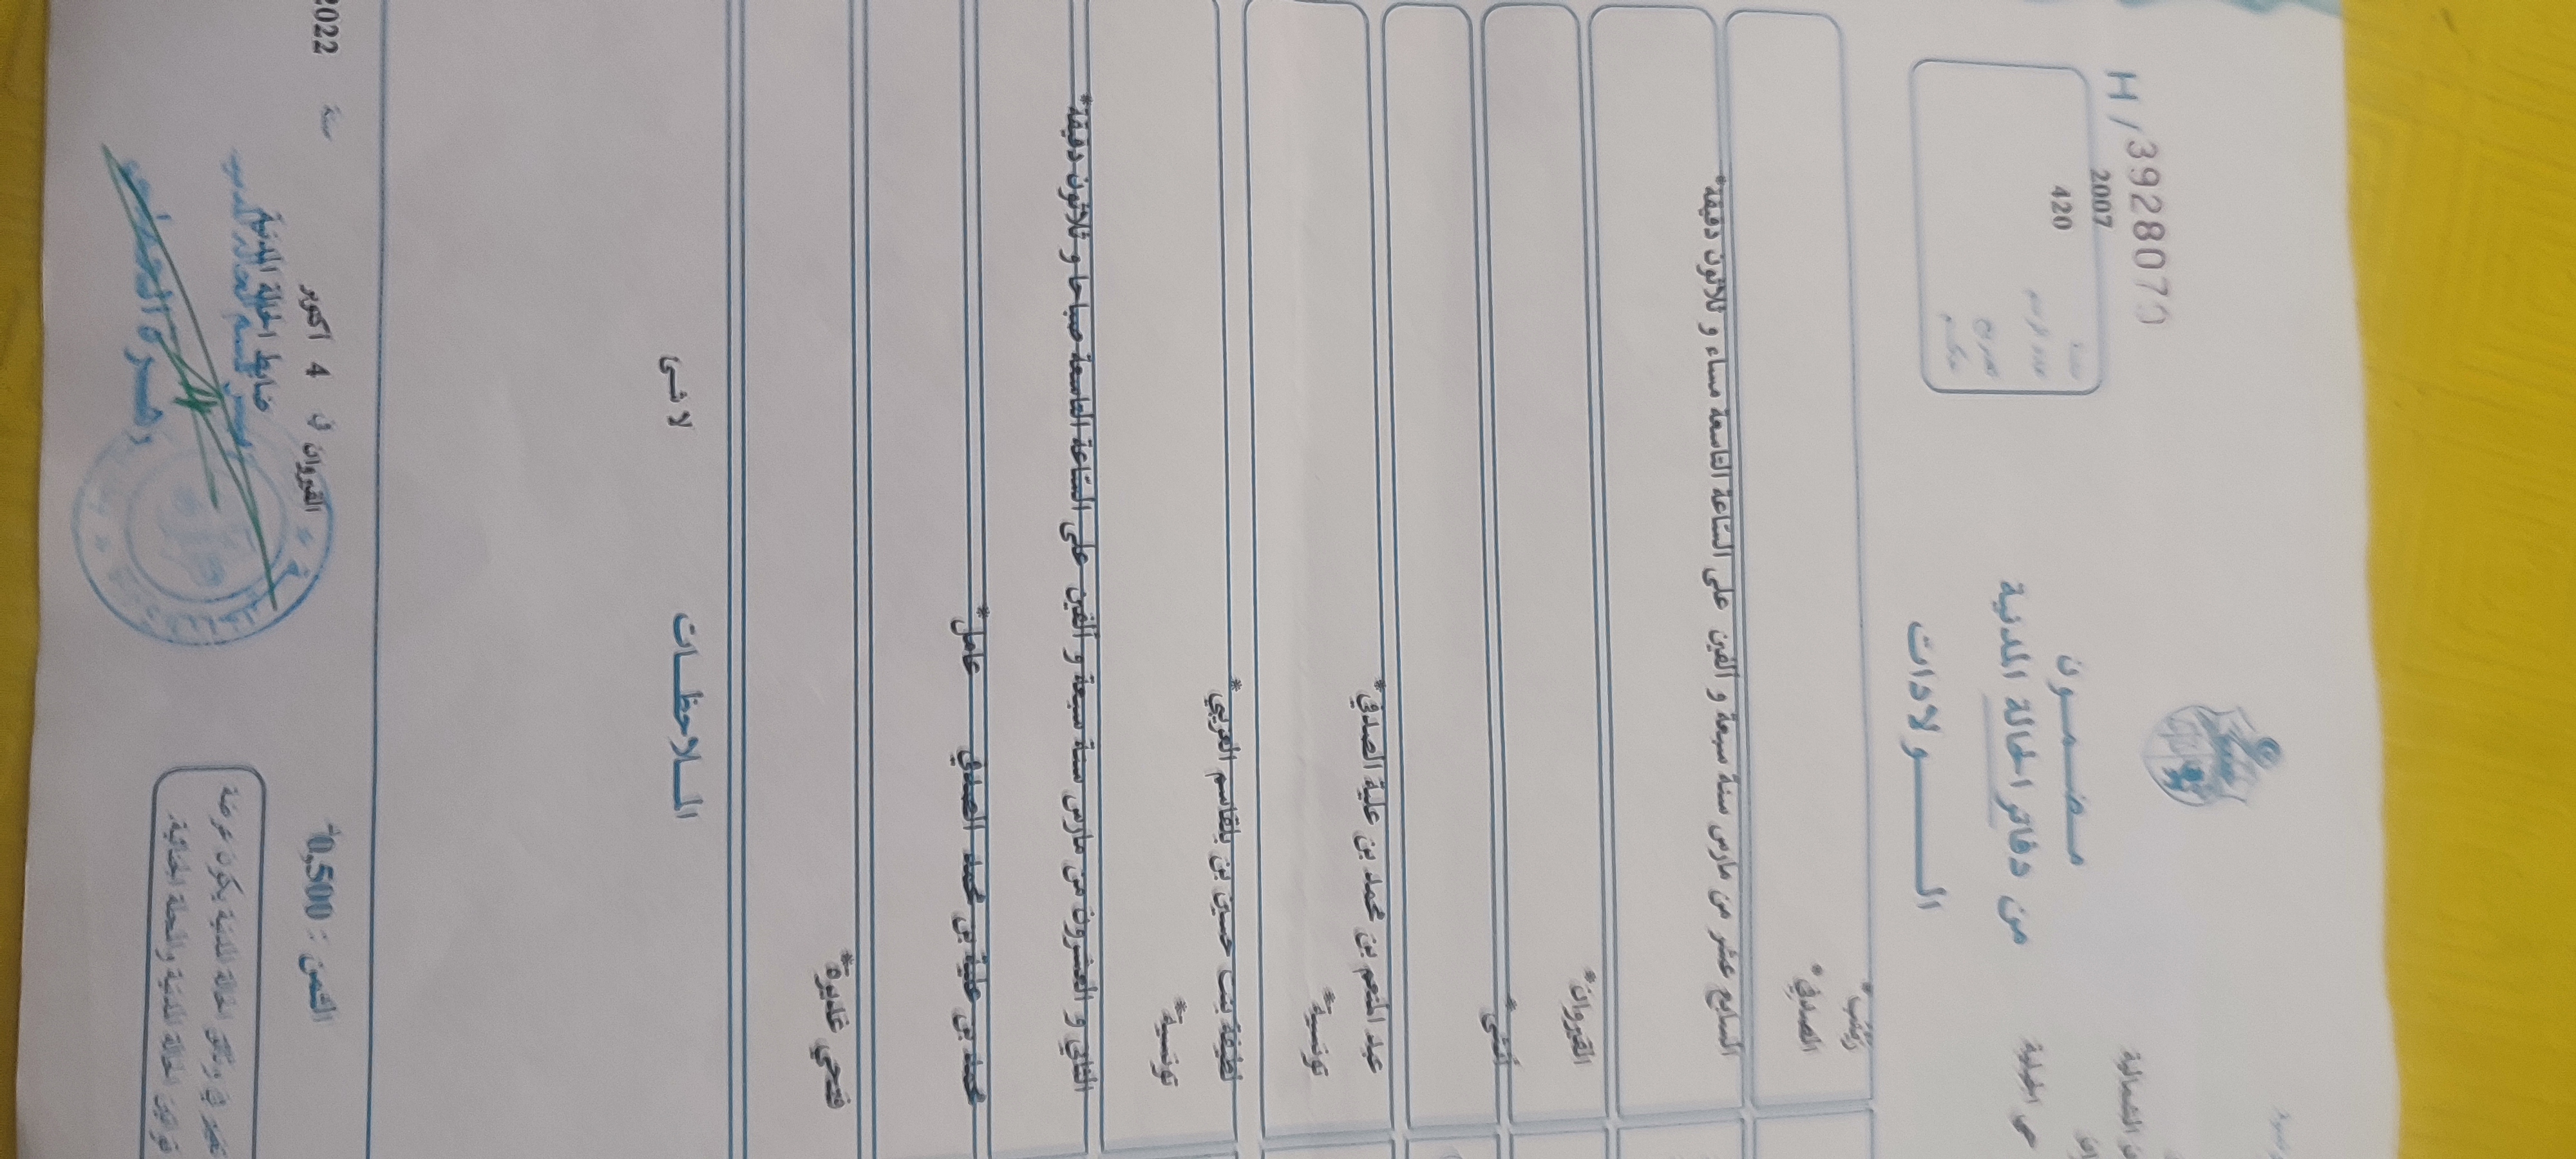 H / 3928070
2007
سنة
420
عدد الرسم
مضمون
من دفاتر الحالة المدنية
الولادات
زينب*
الصدفي*
السابع عشر من مارس سنة سبعة و الفين على الساعة التاسعة مساء و ثلاثون دقيقة*
القيروان*
أنثى*
عبد المنعم بن محمد بن علية الصدفي*
تونسية*
لطيفة بنت حسين بن بلقاسم العربي*
تونسية*
الثاني و العشرون من مارس سنة سبعة و ألفين على الساعة التاسعة صباحا و ثلاثون دقيقة*
محمد بن علية بن محمد الصدفي عامل*
فتحي غديره*
الملاحظات
لا شئ
القيروان في 4 اكتوبر سنة 2022
الثمن : 0,500
ضابط الحالة المدنية